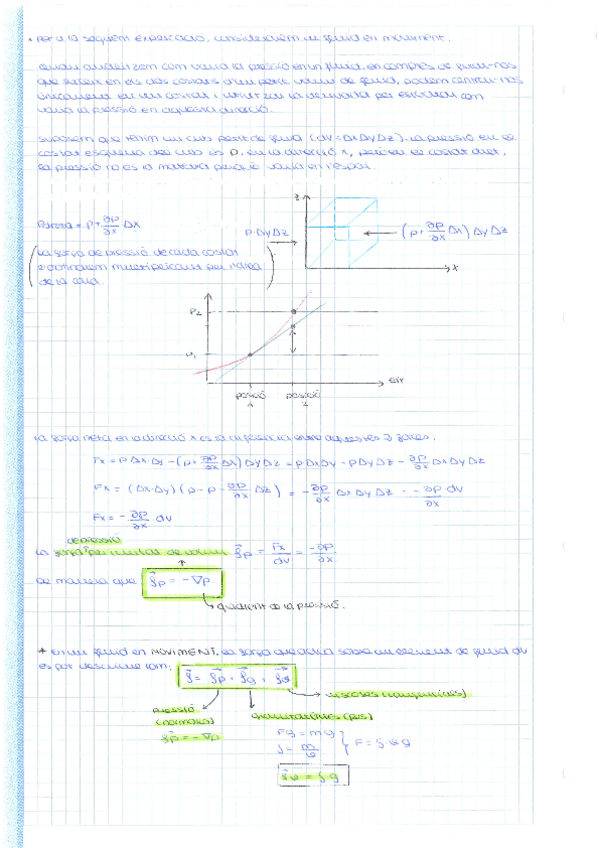 * Per a la següent explicació, considerarem un fluid en moviment.
Quan analitzem com varia la pressió en un fluid, en comptes de fixar-nos
que succeix en els dos costats d'un petit volum de fluid, podem centrar-nos
únicament en un costat i utilitzar la derivada per estudiar com
varia la pressió en aquesta direcció.
Suposem que tenim un cub petit de fluid (dV = Δx Δy Δz). La pressió en el
costat esquerra del cub és P. en la direcció x, però en el costat dret,
la pressió no és la mateixa perquè varia en l'espai.
= P + ∂P/∂x Δx
(La força de pressió de cada costat
obtindrem multiplicant per l'àrea
de la cara)
z
P·ΔyΔz
(P + ∂P/∂x Δx) Δy Δz
x
P2
P1
eix
posició
posició
2
La força neta en la direcció x és la diferència entre aquestes 2 forces.
Fx = P Δx·Δy - (P + ∂P/∂x Δx) Δy Δz = P Δx Δy - P Δy Δz - ∂P/∂x Δx Δy Δz
Fx = (Δx·Δy) (P - P - ∂P/∂x Δz) = -∂P/∂x Δx Δy Δz = -∂P/∂x dV
Fx = -∂P/∂x dV
de pressió
La força per unitat de volum fp = Fx/dV = -∂P/∂x
De manera que fp = -∇P
gradient de la pressió.
* En un fluid en MOVIMENT, la força que actua sobre un element de fluid dV
es pot descriure com,
viscoses (tangencials)
pressió
(normals)
fp = -∇P
gravitatòries (pes)
Fg = mg